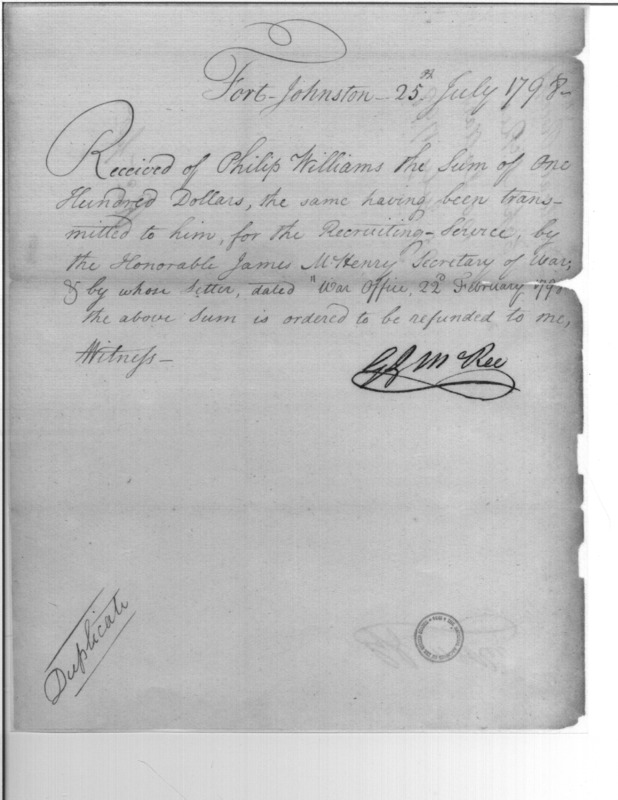 Fort-Johnston - 25th July 1798 -
Received of Philip Williams the Sum of One
Hundred Dollars, the same having been trans-
mitted to him, for the Recruiting-Service, by
the Honorable James McHenry Secretary of War;
& by whose Letter, dated "War Office, 22d February 1798
the above Sum is ordered to be refunded to me,
Witness -
McRee
Duplicate